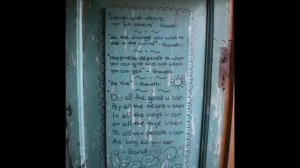 "Laugh with others
not at others" - Gandhi
"Be the change you wish to
see in the world" - Gandhi
"Happiness depends on what
you can give and not what
you can get" - Gandhi
"Be - Gandhi
Do all the good u can
By all the means u can
In all the ways u can
At all the time u can
To all the people u can
As long as you can
- Gandhi